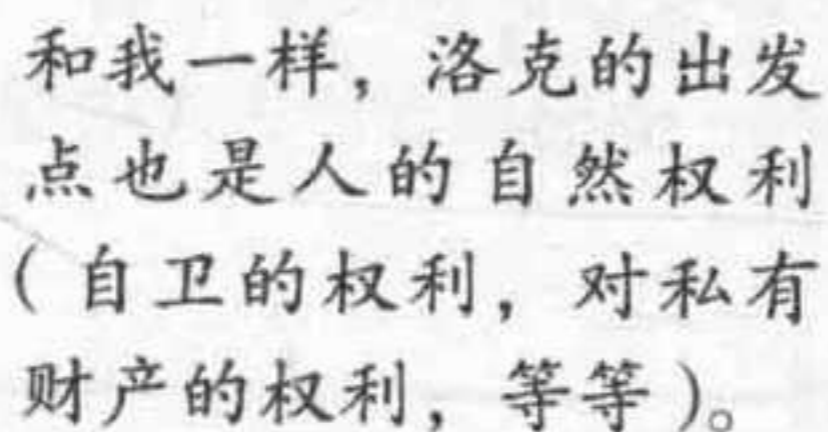 和我一样，洛克的出发
点也是人的自然权利
（自卫的权利，对私有
财产的权利，等等）。